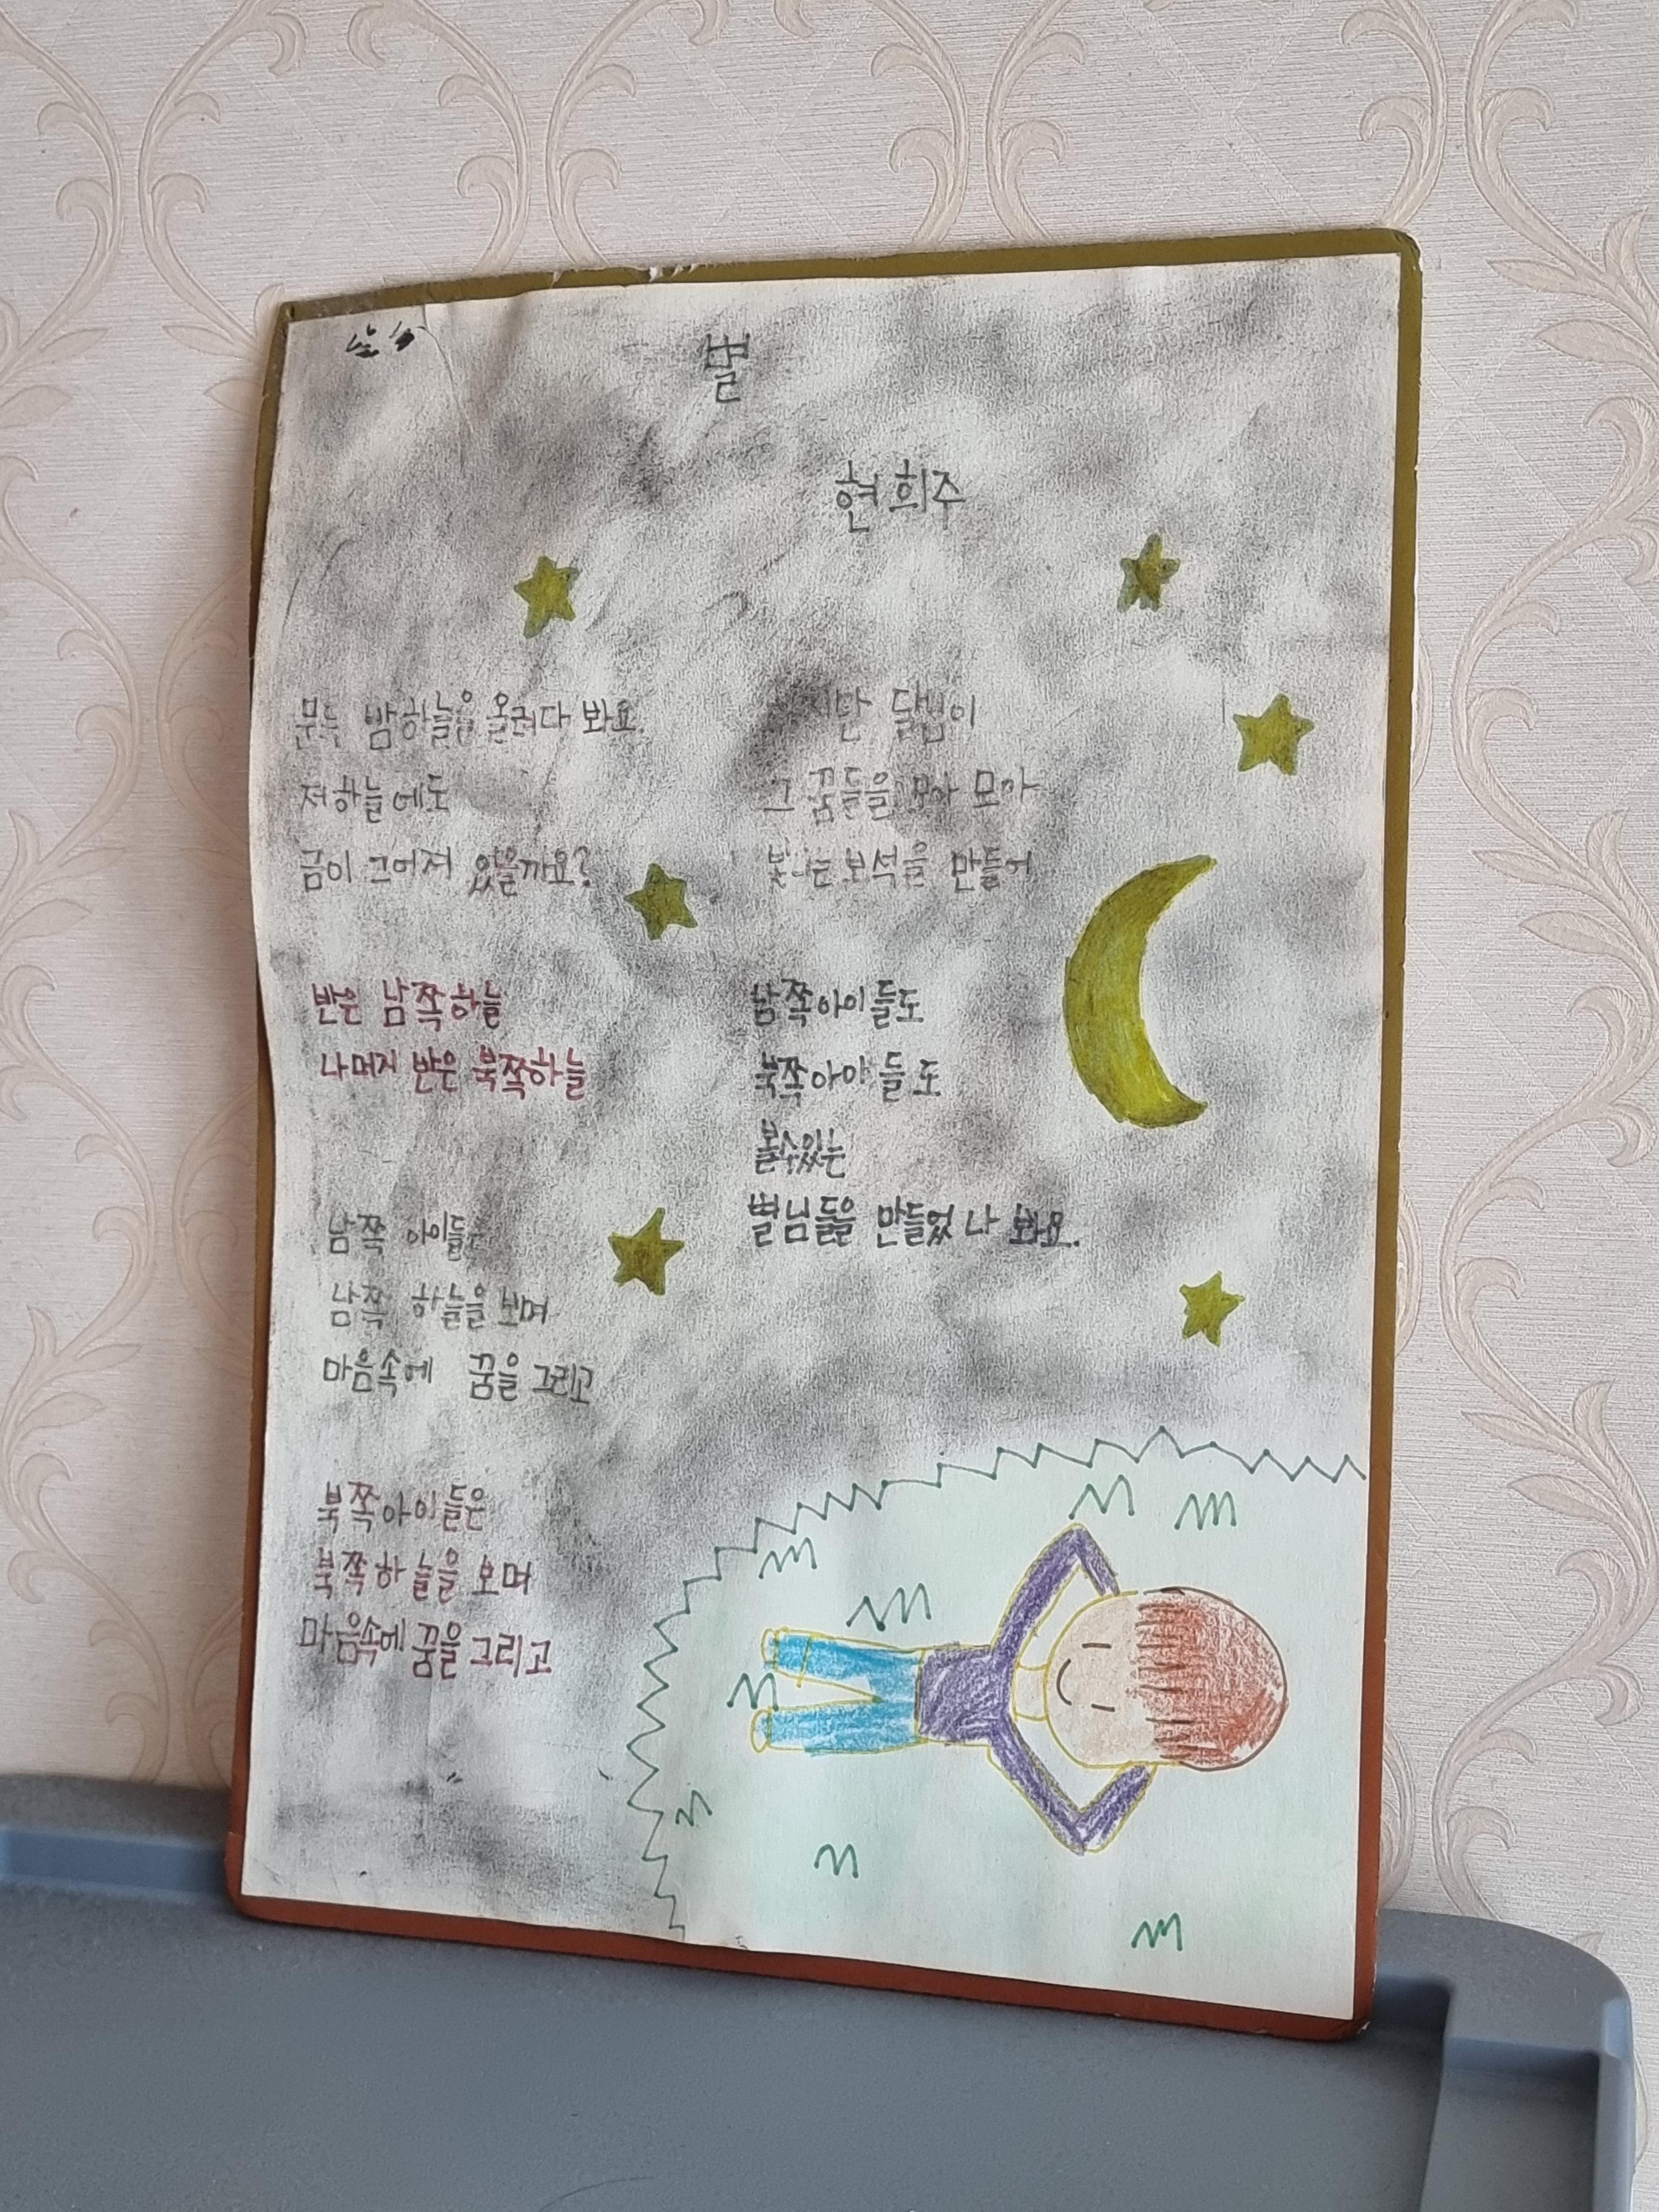 별
현희주
문득 밤하늘을 올려다 봐요.
저 하늘에도
금이 그어져 있을까요?
반은 남쪽하늘
나머지 반은 북쪽하늘
남쪽 아이들은
남쪽 하늘을 보며
마음속에 꿈을 그리고
북쪽아이들은
북쪽하늘을 보며
마음속에 꿈을 그리고
달님이
그 꿈들을 모아 모아
빛나는 보석을 만들어
남쪽아이들도
북쪽아이들도
볼수있는
별님들을 만들었나 봐요.